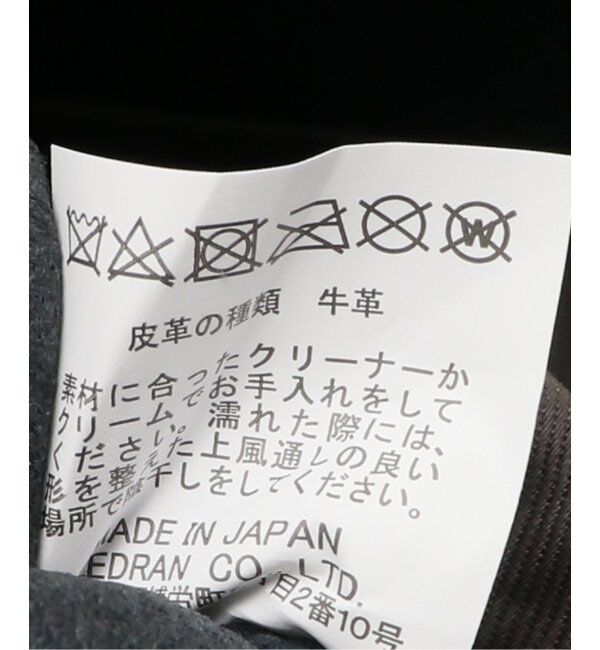 W
皮革の種類 牛革
素材に合ったクリーナーか
クリームでお手入れをして
ください。濡れた際には、
形を整えた上風通しの良い
場所で陰干しをしてください。
MADE IN JAPAN
EDRAN CO., LTD.
栄町 目2番10号